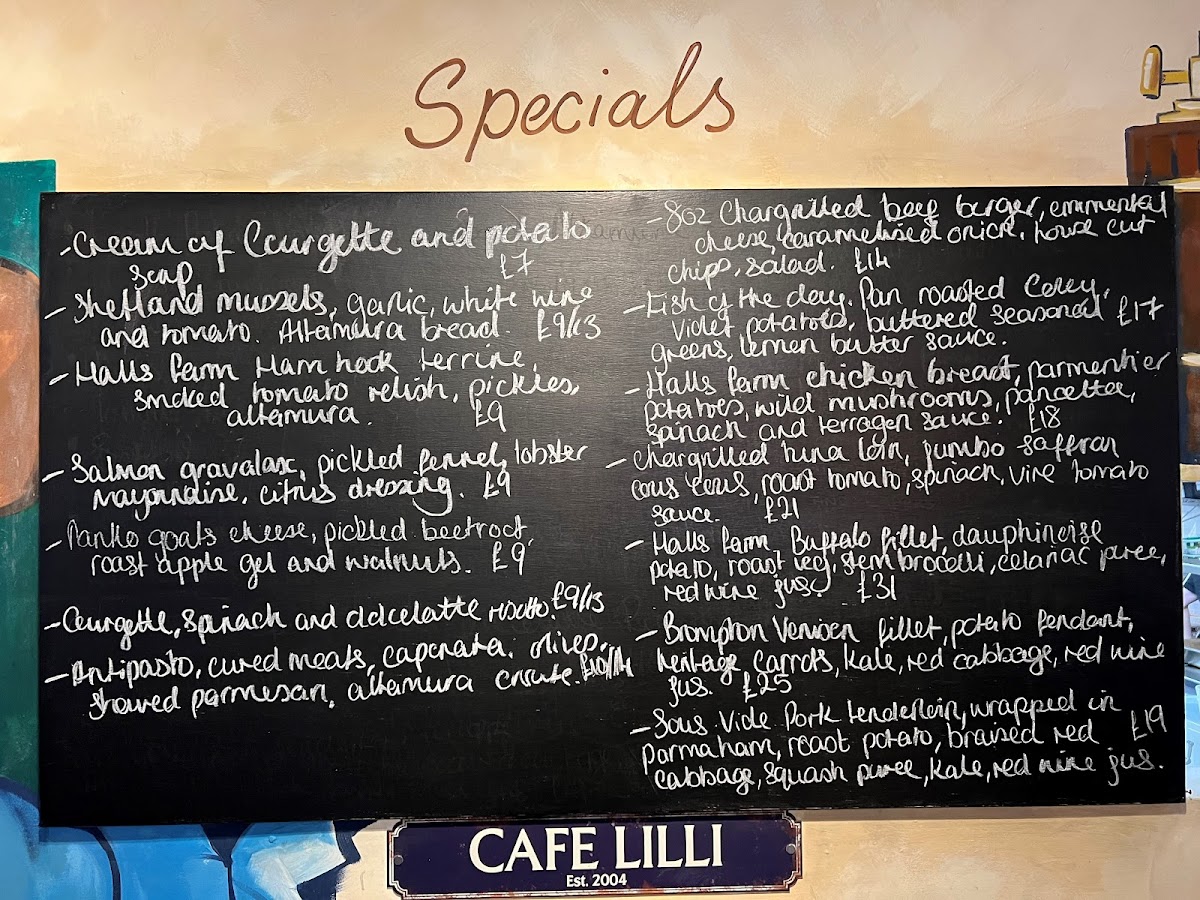 Specials
-Cream of Courgette and potato
soup £7
-Shetland mussels, garlic, white wine
and tomato. Altamura bread. £9/13
-Halls farm Ham hock terrine,
smoked tomato relish, pickles,
altamura. £9
-Salmon gravalax, pickled fennel, lobster
mayonnaise, citrus dressing. £9
-Panko goats cheese, pickled beetroot,
roast apple gel and walnuts. £9
-Courgette, Spinach and dolcelatte risotto. £9/13
-Antipasto, cured meats, caponata, olives,
shaved parmesan, altamura croute. £10/14
-8oz Chargrilled beef burger, emmental
cheese, caramelised onion, house cut
chips, salad. £14
-Fish of the day. Pan roasted Coley,
violet potatoes, buttered seasonal £17
greens, lemon butter sauce.
-Halls farm chicken breast, parmentier
potatoes, wild mushrooms, pancetta,
spinach and terragon sauce. £18
-Chargrilled tuna loin, jumbo saffran
cous cous, roast tomato, spinach, vine tomato
sauce. £21
-Halls farm Buffalo fillet, dauphinoise
potato, roast veg, stem brocolli, celariac puree,
red wine jus £31
-Brompton Venison fillet, potato fondant,
heritage carrots, kale, red cabbage, red wine
jus. £25
-Sous Vide Pork tenderloin, wrapped in
parmaham, roast potato, braised red £19
cabbage, squash puree, kale, red wine jus.
CAFE LILLI
Est. 2004